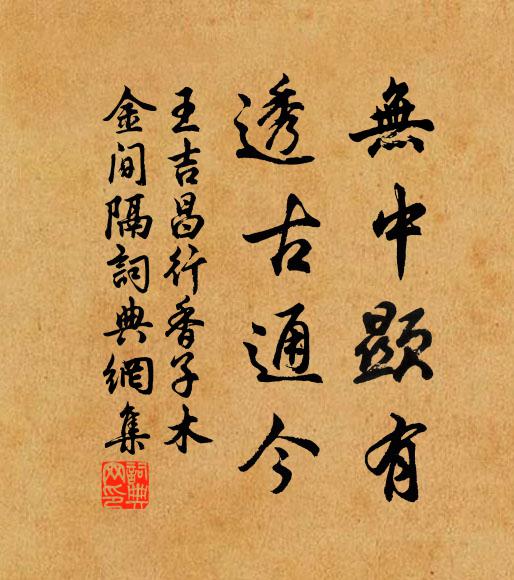 無中顯有
透古通今
王吉昌行香子木
金間隔詞典網集
詞典網印